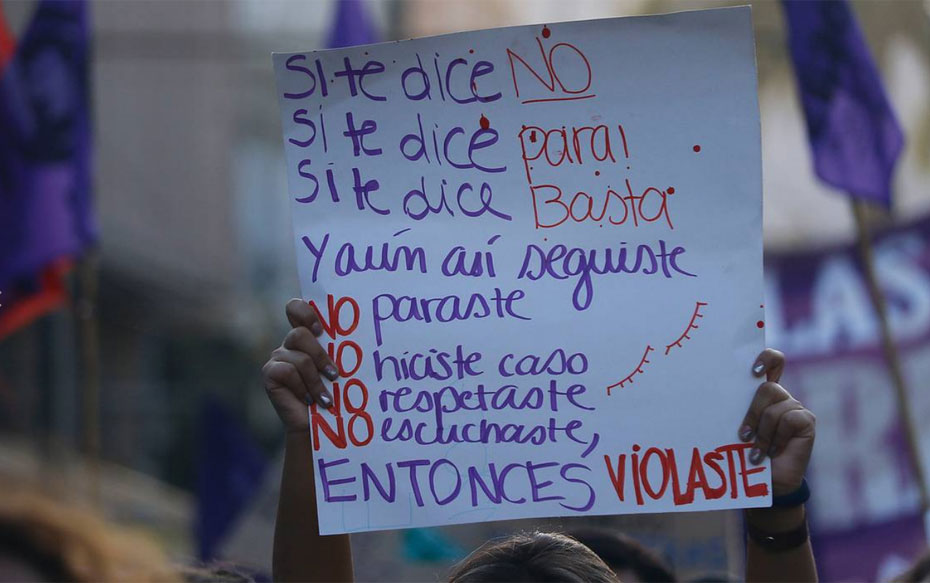 SI te dice NO
SI te dice para!
SI te dice Basta
Y aún así seguiste
NO paraste
NO hiciste caso
NO respetaste
NO escuchaste,
ENTONCES VIOLASTE
LAS